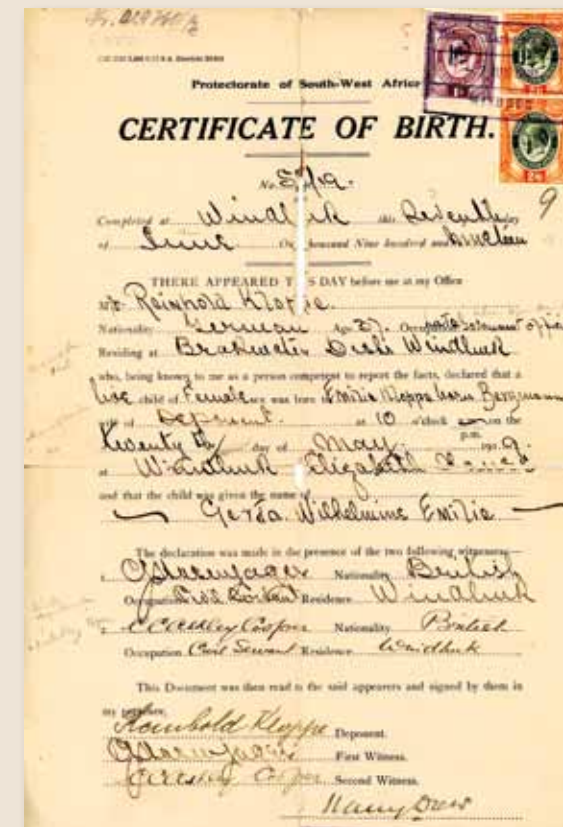 Protectorate of South-West Afric
CERTIFICATE OF BIRTH.
No. 57/19.
9
Completed at Windhuk this Seventh day
of June One thousand Nine hundred and Nineteen
THERE APPEARED THIS DAY before me at my Office
Reinhold Kloppe.
Nationality German Age 37. Occupation
Residing at Brakwater Distr Windhuk
who, being known to me as a person competent to report the facts, declared that a
live child of Female sex was born to Emilie Kloppe born Bergmann
wife of Deponent. at 10 o'clock on the
p.m.
twentyth day of May. 1919.
at Windhuk Elizabeth
and that the child was given the name of
Gerda Wilhelmine Emilie
The declaration was made in the presence of the two following witnesses—
1. Nationality British
Occupation Civil Servant Residence Windhuk
2. Cooper Nationality British
Occupation Civil Servant Residence Windhuk
This Document was then read to the said appearers and signed by them in
my presence.
Reinhold Kloppe Deponent.
First Witness.
Cooper Second Witness.
Harry Drew